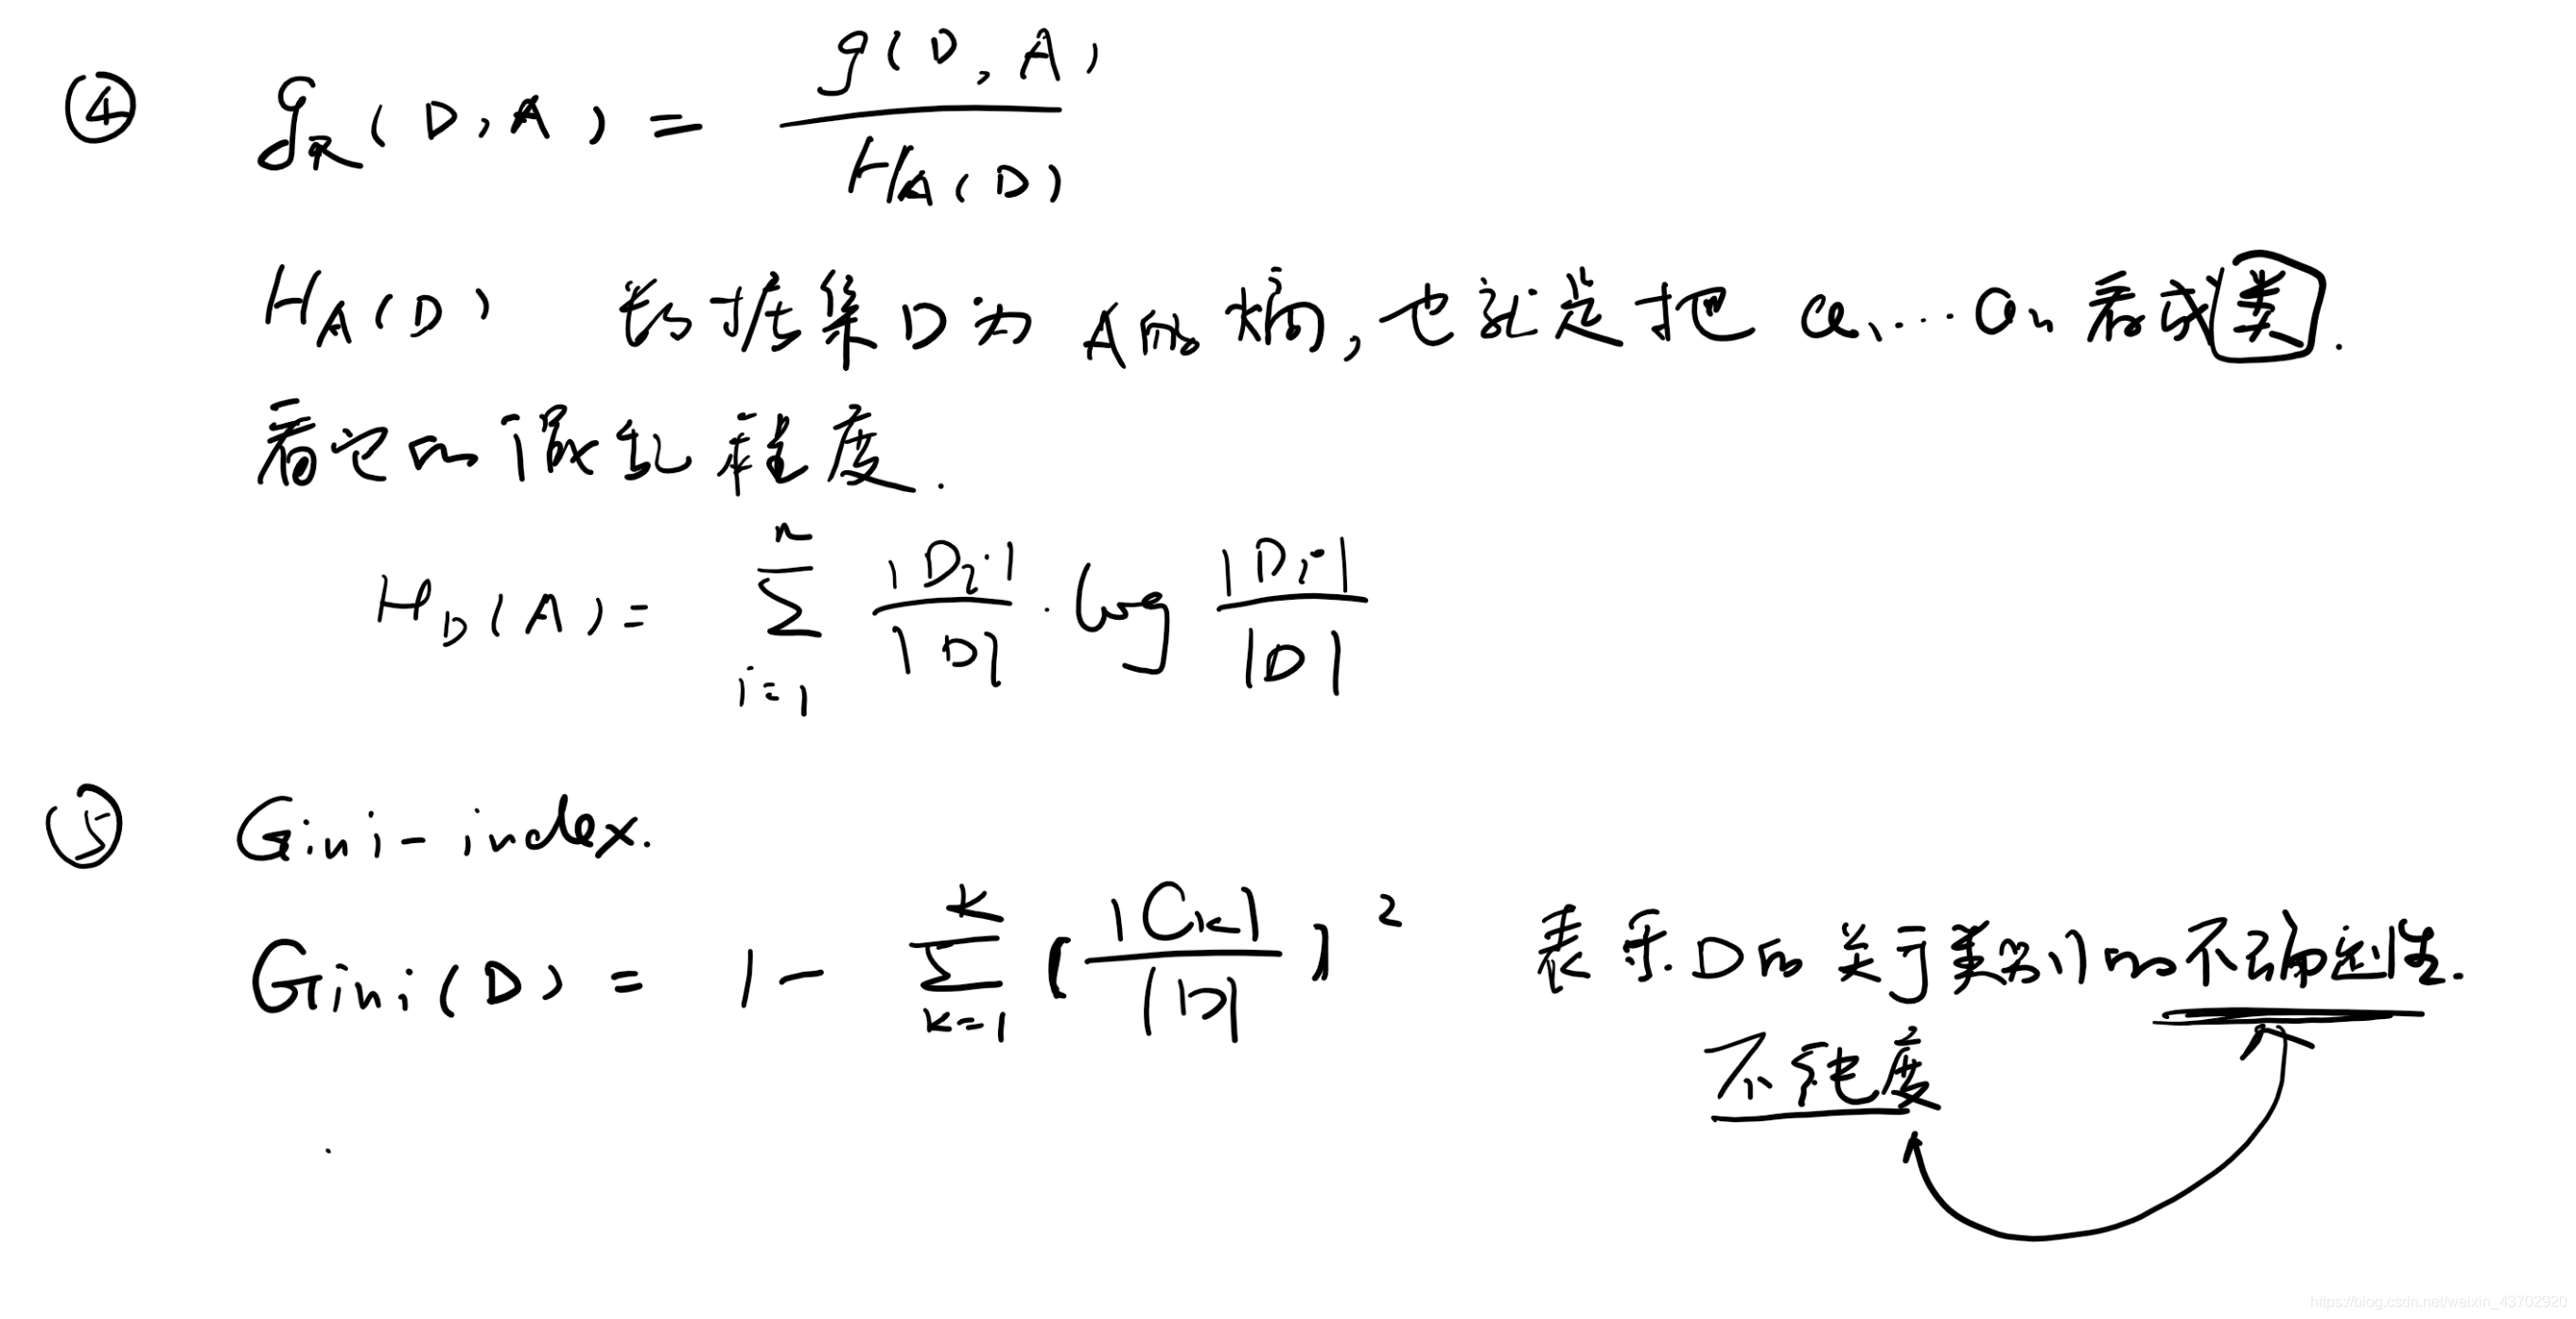 ④ g_R(D,A) = g(D,A) / H_A(D)
H_A(D) 数据集D为A的熵,也就是把a₁…aₙ看成类.
看它的混乱程度.
H_D(A) = ∑_{i=1}^{n} |D_i|/|D| · log |D_i|/|D|
⑤ Gini-index.
Gini(D) = 1 - ∑_{k=1}^{K} (|C_k|/|D|)² 表示D的关于类别的不确定性.
不纯度
https://blog.csdn.net/weixin_43702920